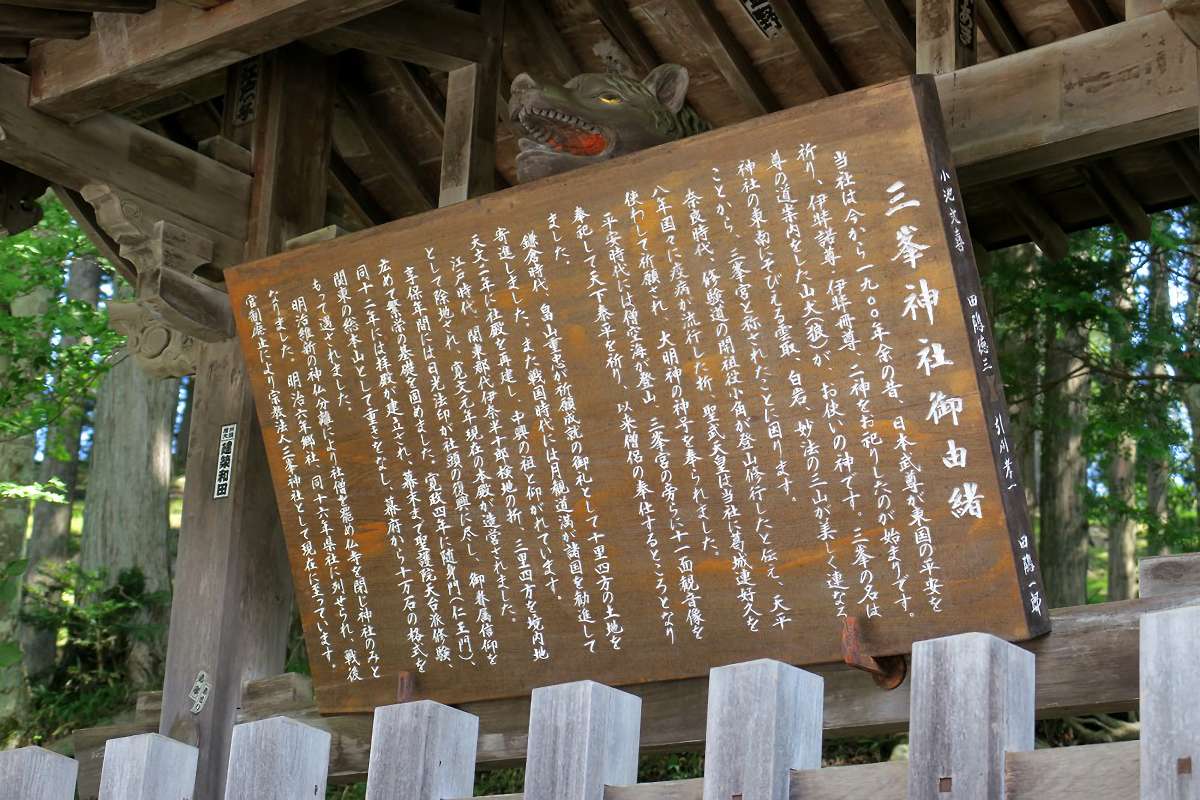 三峯神社御由緒
当社は今から一九〇〇年余の昔、日本武尊が東国の平安を
祈り、伊弉諾尊・伊弉冊尊、二神をお祀りしたのが始まりです。
尊の道案内をした山犬(狼)が、お使いの神です。三峯の名は
神社の東南にそびえる雲取、白岩、妙法の三山が美しく連なる
ことから、三峯宮と称されたことに因ります。
奈良時代、修験道の開祖役小角が登山修行したと伝え、天平
八年国々に疫病が流行した折、聖武天皇は当社に葛城連好久を
使わして祈願され、大明神の神号を奉られました。
平安時代には僧空海が登山、三峯宮の旁らに十一面観音像を
奉祀して天下泰平を祈り、以来僧侶の奉仕するところとなり
ました。
鎌倉時代、畠山重忠が祈願成就の御礼として十里四方の土地を
寄進しました。また戦国時代には月観道満が諸国を勧進して
天文二年に社殿を再建し、中興の祖と仰がれています。
江戸時代、関東郡代伊奈半十郎検地の折、三里四方を境内地
として除地され、寛文元年現在の本殿が造営されました。
享保年間には日光法印が社頭の復興に尽し、御眷属信仰を
広め、繁栄の基礎を固めました。寛政四年に随身門(仁王門)、
同十二年には拝殿が建立され、幕末まで聖護院天台派修験、
関東の総本山として重きをなし、幕府から十万石の格式を
もって遇されました。
明治維新の神仏分離により社僧を罷め仏寺を閉じ神社のみと
なりました。明治六年郷社、同十六年県社に列せられ、戦後
官制廃止により宗教法人三峯神社として現在に至っています。
小池文喜
田隝徳三
引間孝一
田隝一郎
建築和田